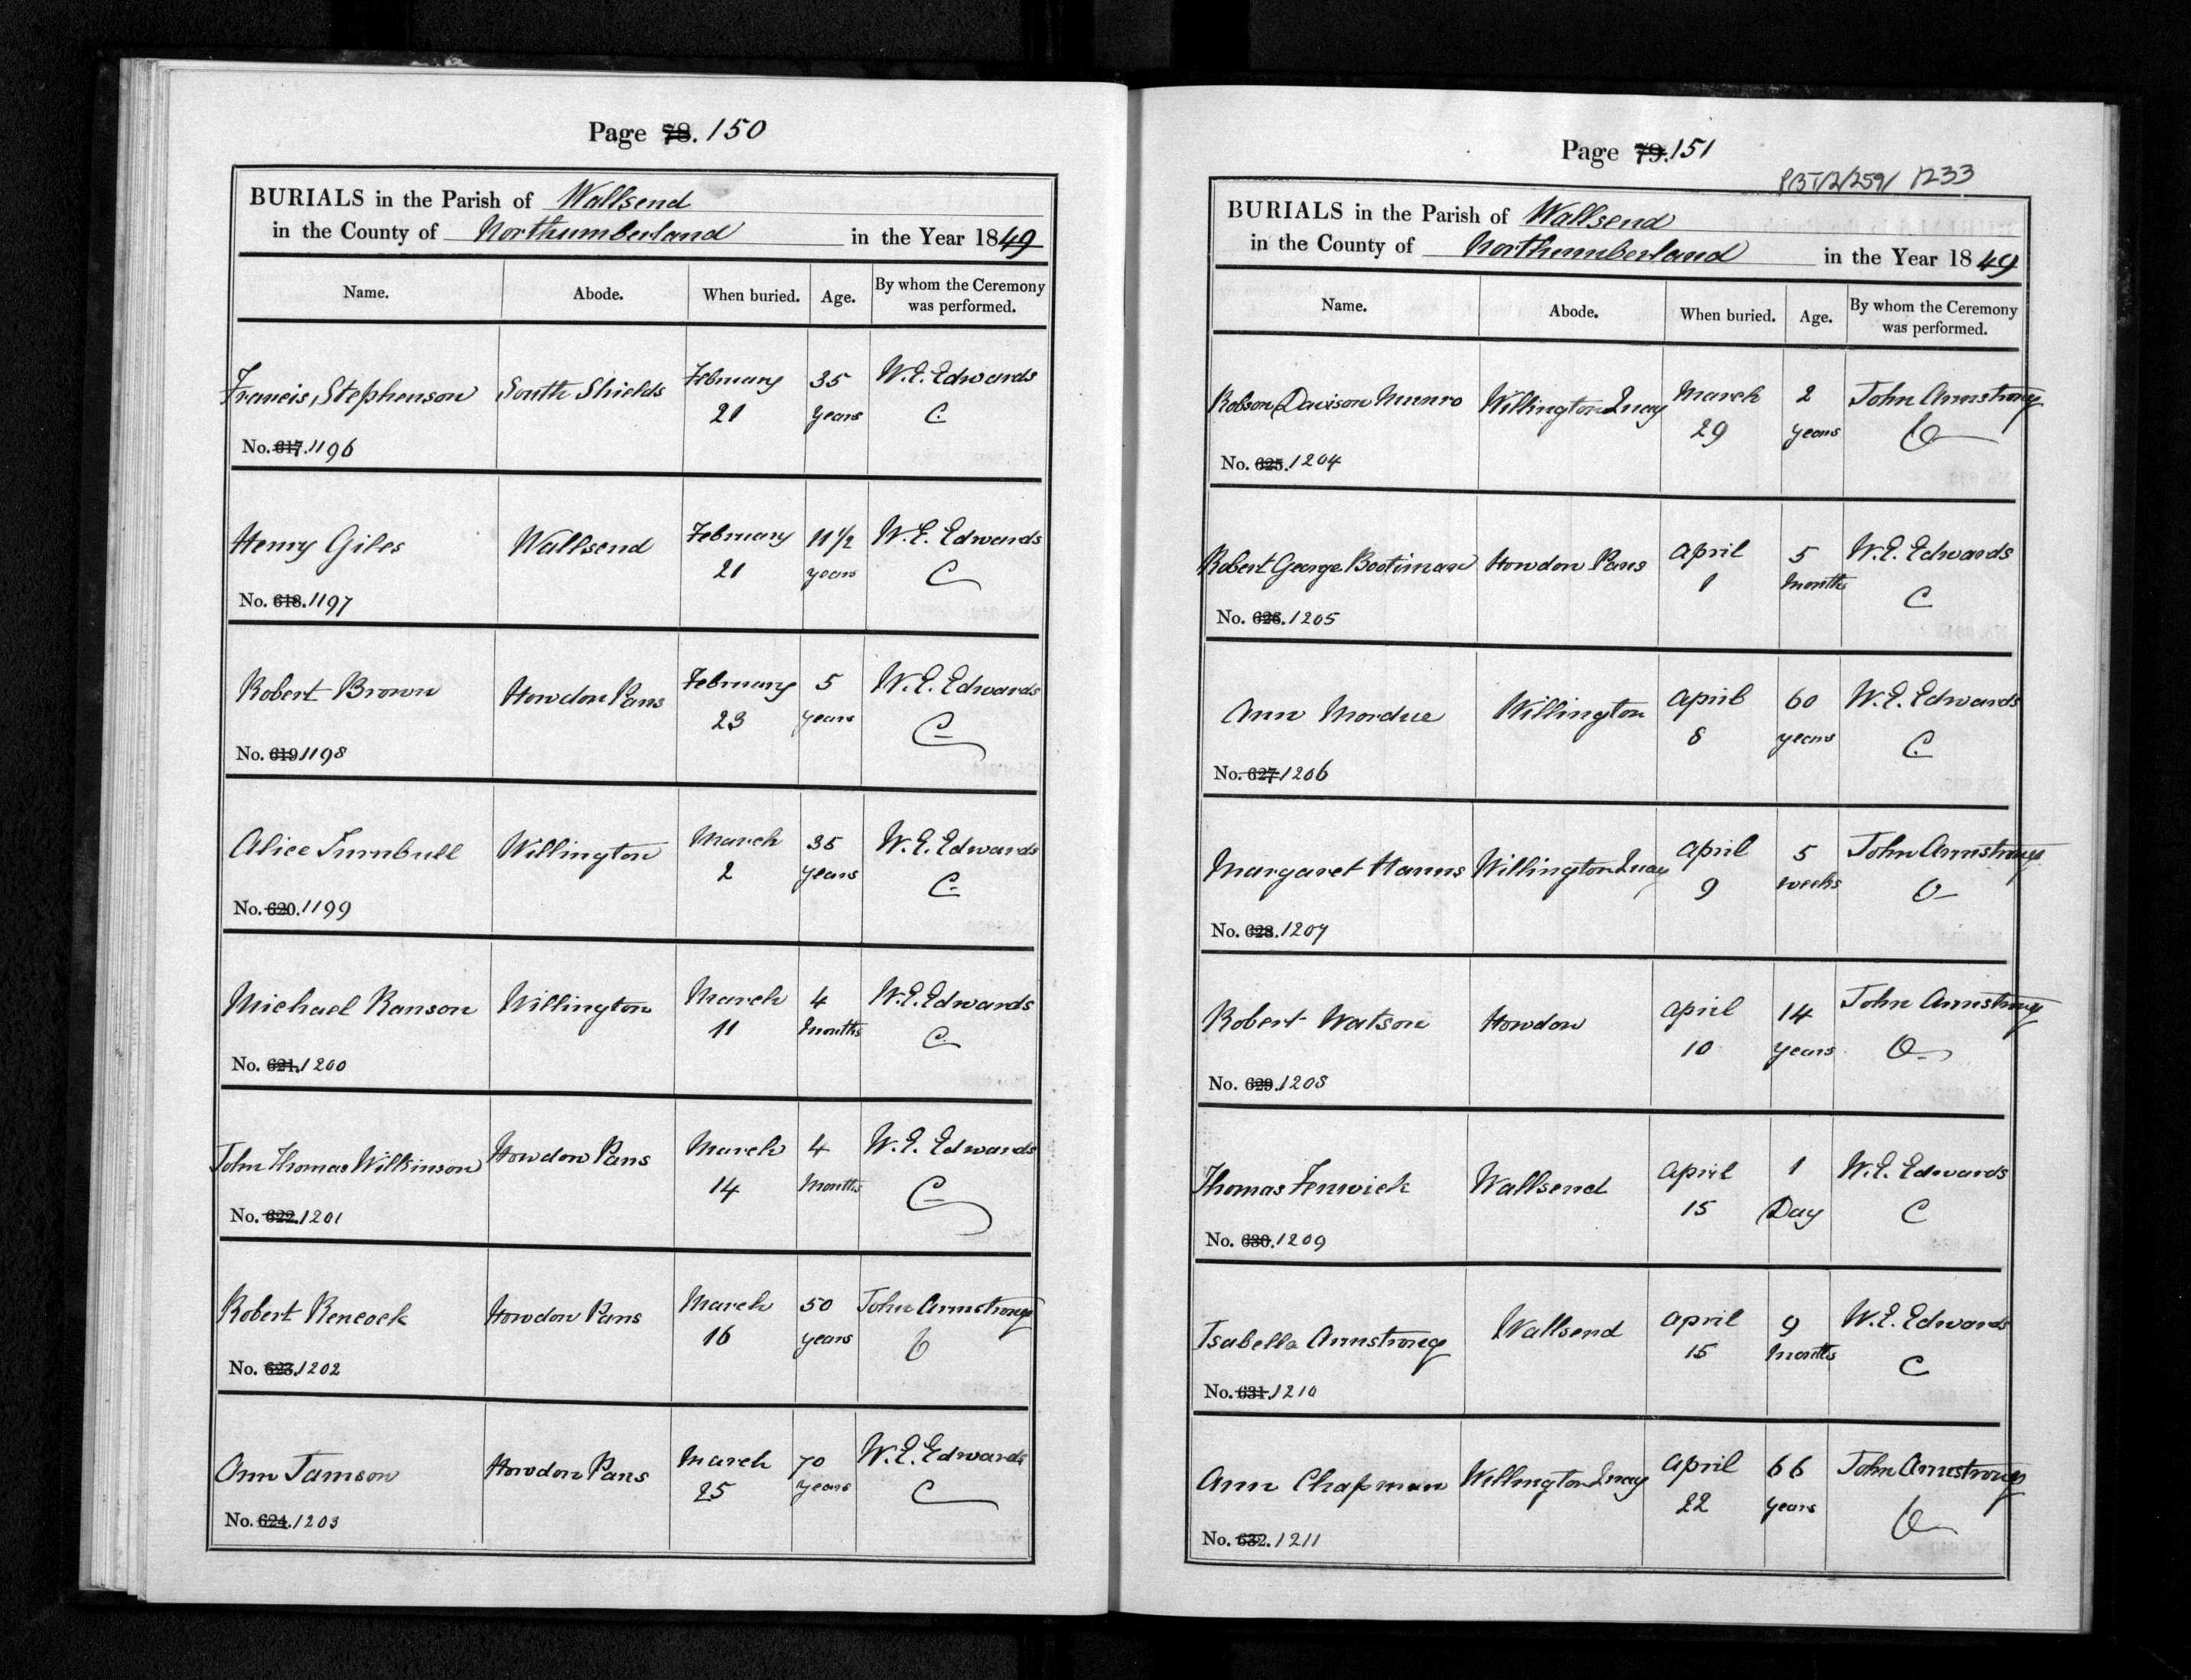 Page 78. 150
BURIALS in the Parish of Wallsend
in the County of Northumberland in the Year 1849
Name. Abode. When buried. Age. By whom the Ceremony was performed.
Francis Stephenson South Shields February 21 35 years W. E. Edwards C
No. 617. 1196
Henry Giles Wallsend February 21 11 1/2 years W. E. Edwards C
No. 618. 1197
Robert Brown Howdon Pans February 23 5 years W. E. Edwards C
No. 619 1198
Alice Turnbull Willington March 2 35 years W. E. Edwards C
No. 620. 1199
Michael Ranson Willington March 11 4 Months W. E. Edwards C
No. 621. 1200
John Thomas Wilkinson Howdon Pans March 14 4 Months W. E. Edwards C
No. 622. 1201
Robert Howdon Pans March 16 50 years John Armstrong
No. 623. 1202
Ann Jamson Howdon Pans March 25 70 years W. E. Edwards C
No. 624. 1203
Page 79. 151
PBT/2/259/ 1233
BURIALS in the Parish of Wallsend
in the County of Northumberland in the Year 1849
Name. Abode. When buried. Age. By whom the Ceremony was performed.
Robson Davison Munro Willington Quay March 29 2 years John Armstrong
No. 625. 1204
Robert George Bootiman Howdon Pans April 1 5 Months W. E. Edwards C
No. 626. 1205
Ann Mordue Willington April 8 60 years W. E. Edwards C
No. 627. 1206
Margaret Hanns Willington Quay April 9 5 weeks John Armstrong
No. 628. 1207
Robert Watson Howdon April 10 14 years John Armstrong
No. 629. 1208
Thomas Fenwick Wallsend April 15 1 Day W. E. Edwards C
No. 630. 1209
Isabella Armstrong Wallsend April 15 9 Months W. E. Edwards C
No. 631. 1210
Ann Chapman Willington Quay April 22 66 years John Armstrong
No. 632. 1211